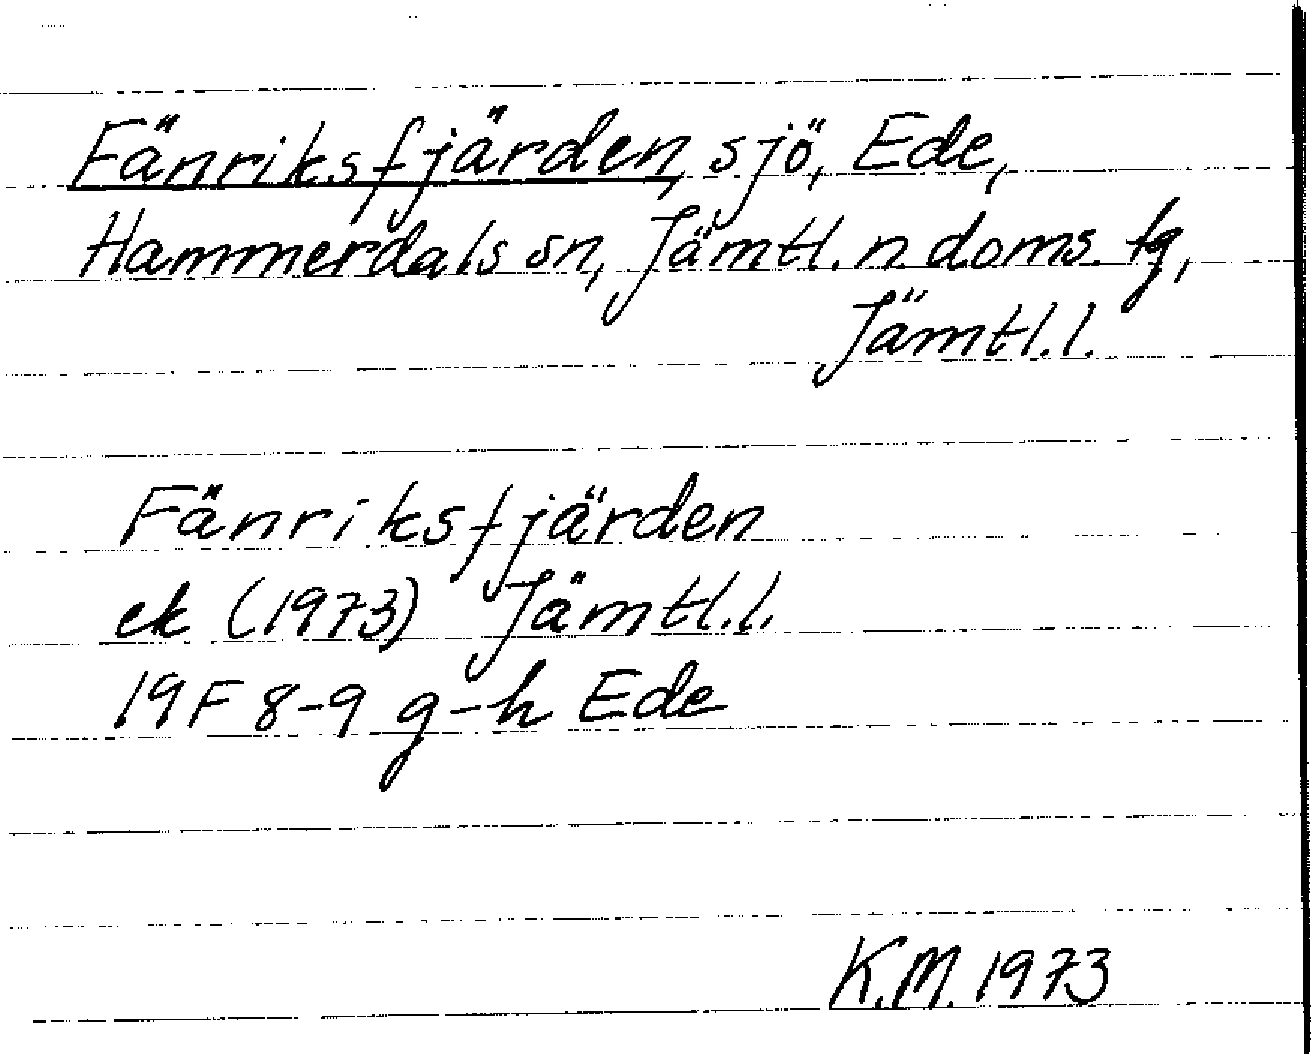 Fänriksfjärden, sjö, Ede,
Hammerdals sn, Jämtl. n. doms. tg,
Jämtl. l.
Fänriksfjärden
ek (1973) Jämtl. l.
19 F 8-9 g-h Ede
K.M. 1973